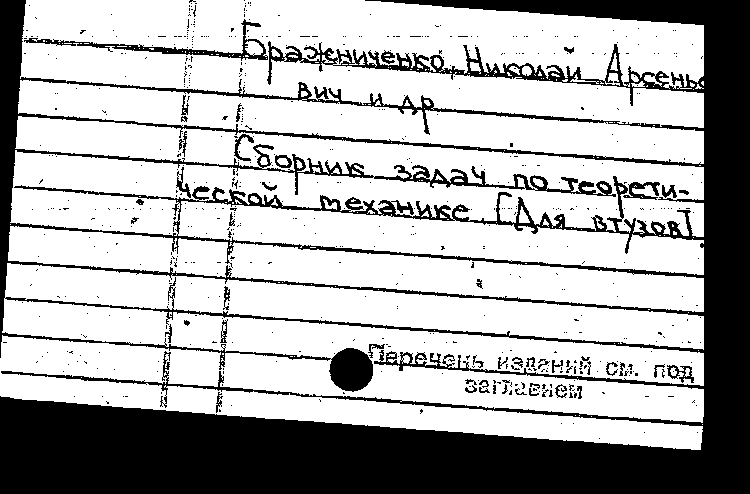 Бражниченко, Николай Арсенье
вич и др
Сборник задач по теорети-
ческой механике [Для втузов].
Перечень изданий см. под
заглавием